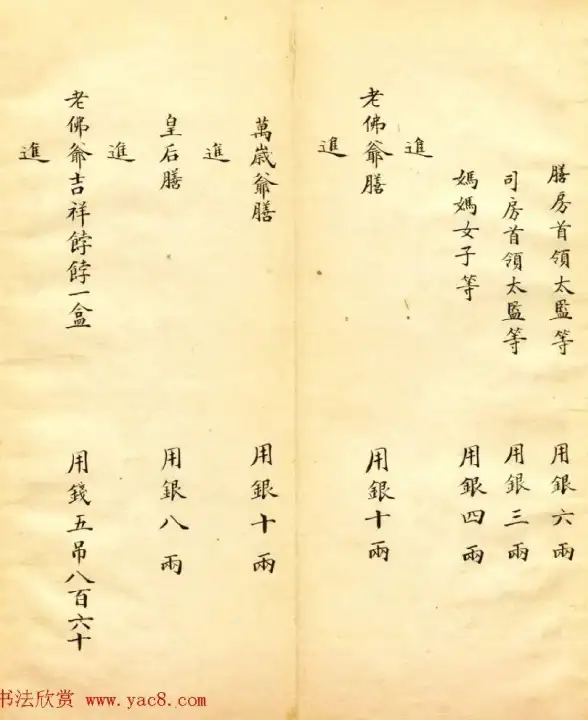 膳房首領太監等 用銀六兩
司房首領太監等 用銀三兩
媽媽女子等 用銀四兩
進
老佛爺膳 用銀十兩
進
萬歲爺膳 用銀十兩
進
皇后膳 用銀八兩
進
老佛爺吉祥餑餑一盒 用錢五吊八百六十
進
书法欣赏 www.yac8.com